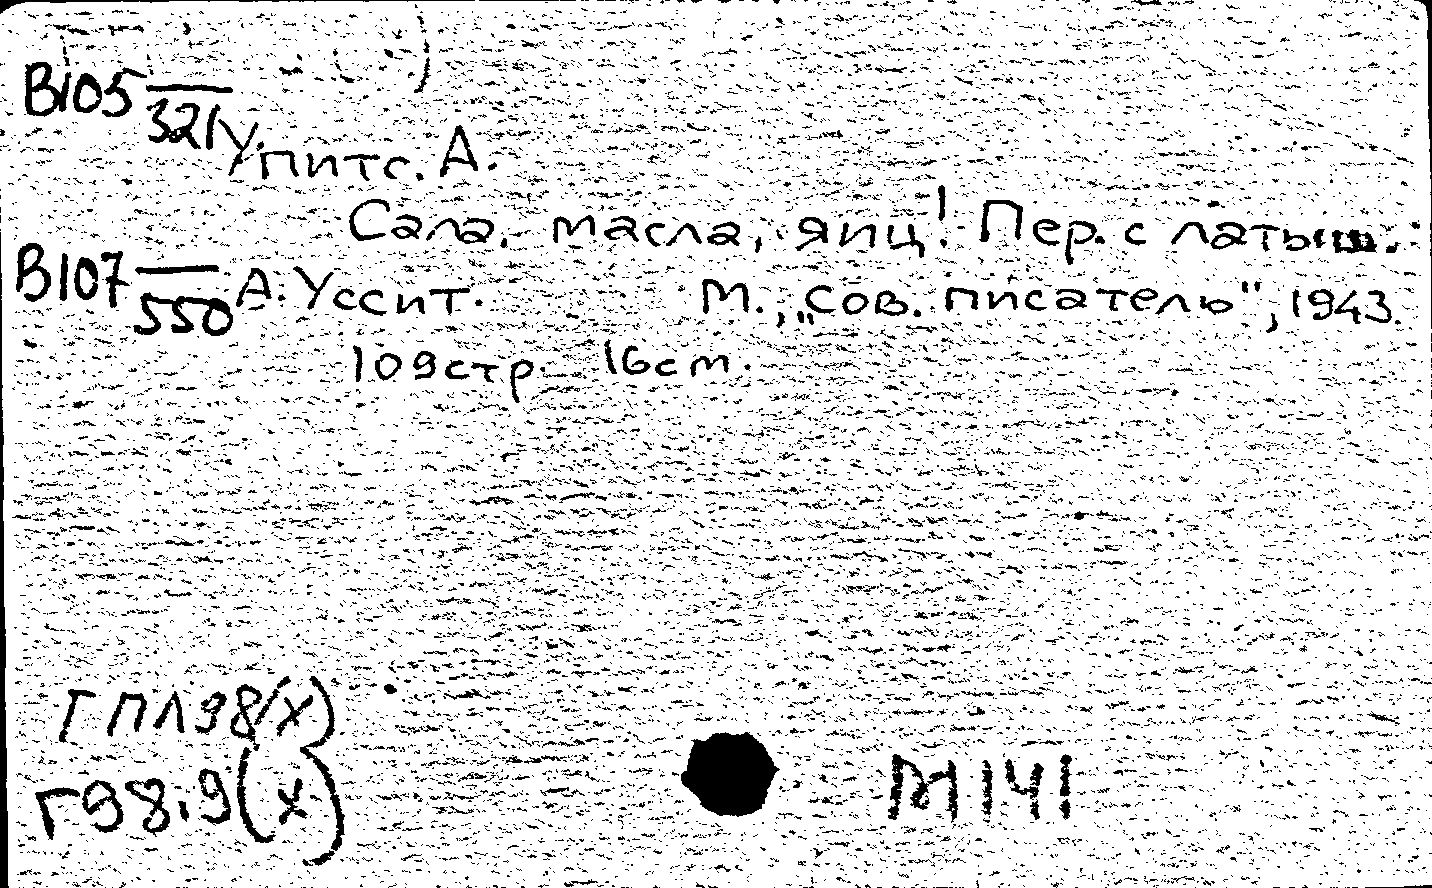 В105
321
Упитс. А.
Сала, масла, яиц! Пер. с латыш.
В107
550
А. Уссит. М., „Сов. писатель", 1943.
109стр. 16см.
ГПЛ98(х)
Г98.9(х)
М141